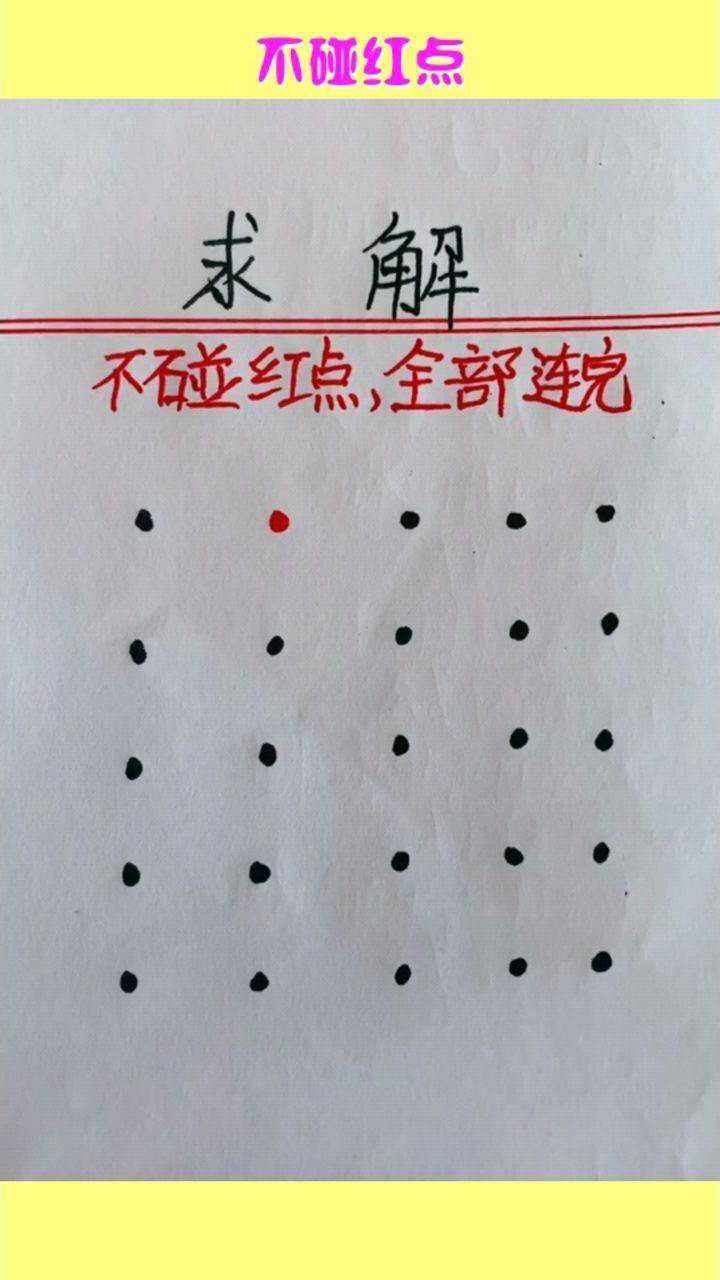 不碰红点
求解
不碰红点,全部连完